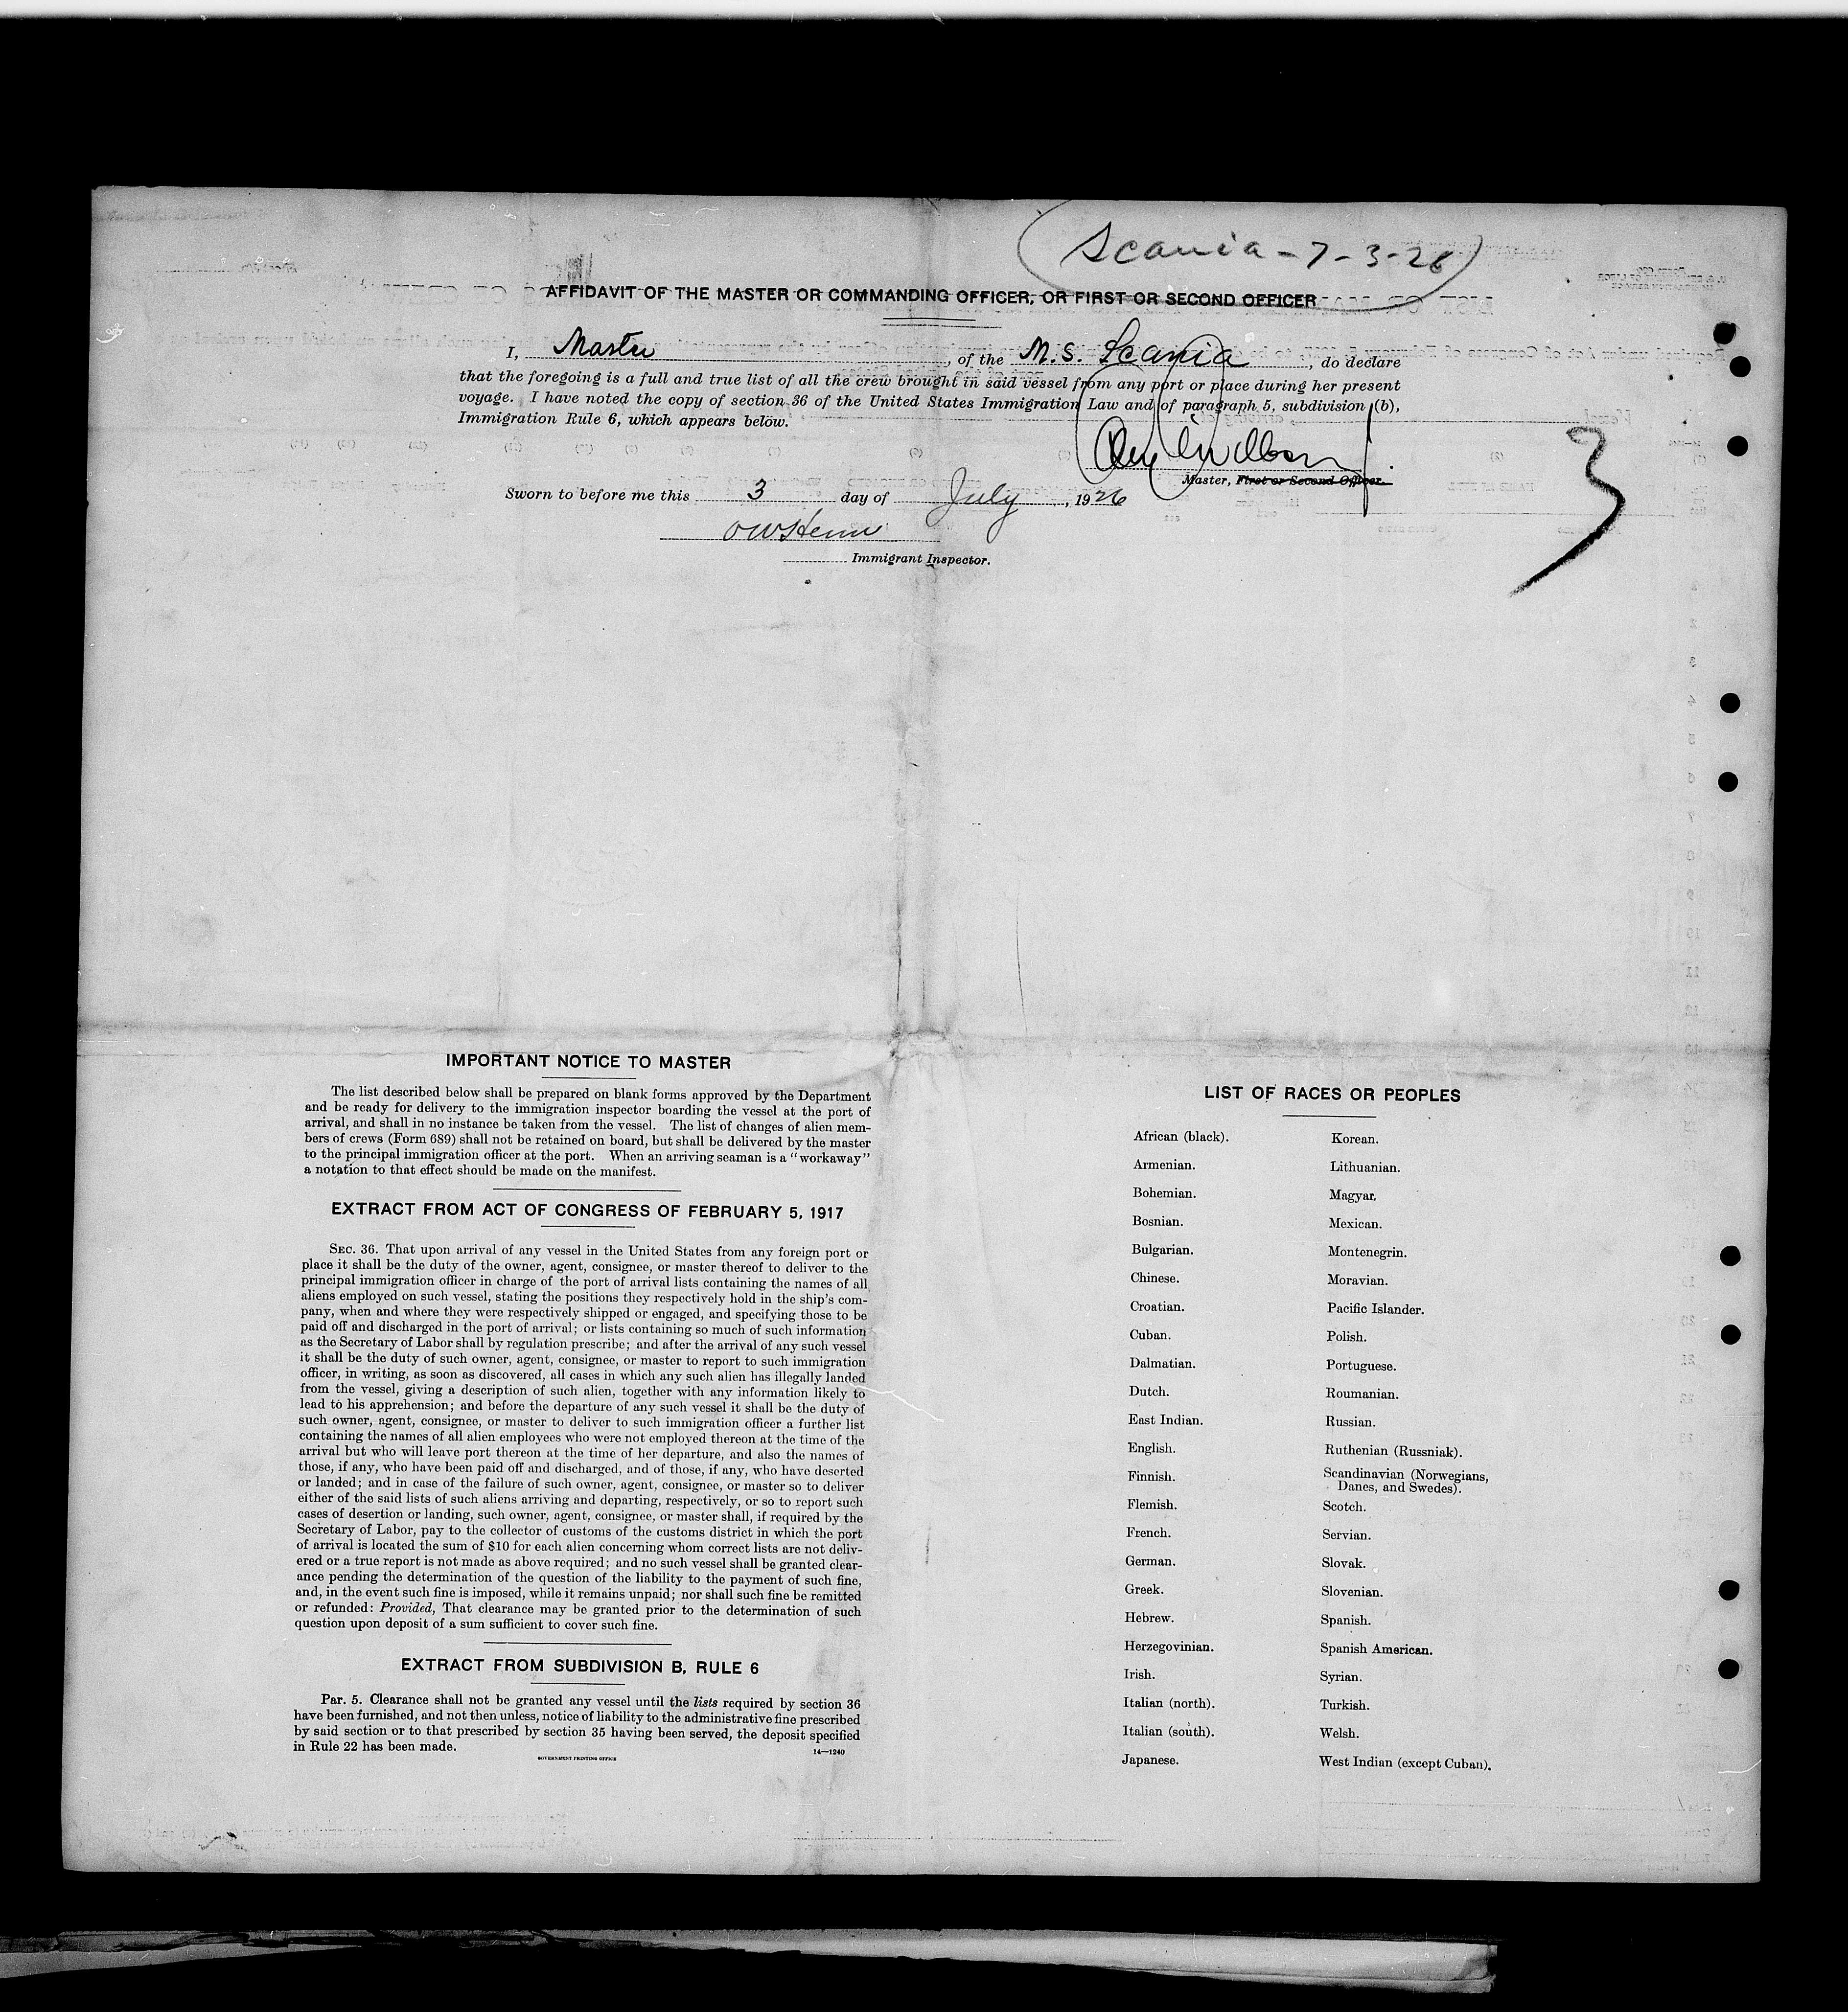 Scania - 7 - 3 - 26
AFFIDAVIT OF THE MASTER OR COMMANDING OFFICER, OR FIRST OR SECOND OFFICER
I, Master, of the M.S. Scania, do declare
that the foregoing is a full and true list of all the crew brought in said vessel from any port or place during her present
voyage. I have noted the copy of section 36 of the United States Immigration Law and of paragraph 5, subdivision (b),
Immigration Rule 6, which appears below.
3
Master, First or Second Officer.
Sworn to before me this 3 day of July, 1926
Immigrant Inspector.
IMPORTANT NOTICE TO MASTER
The list described below shall be prepared on blank forms approved by the Department
and be ready for delivery to the immigration inspector boarding the vessel at the port of
arrival, and shall in no instance be taken from the vessel. The list of changes of alien mem-
bers of crews (Form 689) shall not be retained on board, but shall be delivered by the master
to the principal immigration officer at the port. When an arriving seaman is a "workaway"
a notation to that effect should be made on the manifest.
EXTRACT FROM ACT OF CONGRESS OF FEBRUARY 5, 1917
SEC. 36. That upon arrival of any vessel in the United States from any foreign port or
place it shall be the duty of the owner, agent, consignee, or master thereof to deliver to the
principal immigration officer in charge of the port of arrival lists containing the names of all
aliens employed on such vessel, stating the positions they respectively hold in the ship's com-
pany, when and where they were respectively shipped or engaged, and specifying those to be
paid off and discharged in the port of arrival; or lists containing so much of such information
as the Secretary of Labor shall by regulation prescribe; and after the arrival of any such vessel
it shall be the duty of such owner, agent, consignee, or master to report to such immigration
officer, in writing, as soon as discovered, all cases in which any such alien has illegally landed
from the vessel, giving a description of such alien, together with any information likely to
lead to his apprehension; and before the departure of any such vessel it shall be the duty of
such owner, agent, consignee, or master to deliver to such immigration officer a further list
containing the names of all alien employees who were not employed thereon at the time of the
arrival but who will leave port thereon at the time of her departure, and also the names of
those, if any, who have been paid off and discharged, and of those, if any, who have deserted
or landed; and in case of the failure of such owner, agent, consignee, or master so to deliver
either of the said lists of such aliens arriving and departing, respectively, or so to report such
cases of desertion or landing, such owner, agent, consignee, or master shall, if required by the
Secretary of Labor, pay to the collector of customs of the customs district in which the port
of arrival is located the sum of $10 for each alien concerning whom correct lists are not deliv-
ered or a true report is not made as above required; and no such vessel shall be granted clear-
ance pending the determination of the question of the liability to the payment of such fine,
and, in the event such fine is imposed, while it remains unpaid; nor shall such fine be remitted
or refunded: Provided, That clearance may be granted prior to the determination of such
question upon deposit of a sum sufficient to cover such fine.
EXTRACT FROM SUBDIVISION B, RULE 6
Par. 5. Clearance shall not be granted any vessel until the lists required by section 36
have been furnished, and not then unless, notice of liability to the administrative fine prescribed
by said section or to that prescribed by section 35 having been served, the deposit specified
in Rule 22 has been made.
GOVERNMENT PRINTING OFFICE
14—1240
LIST OF RACES OR PEOPLES
African (black).
Armenian.
Bohemian.
Bosnian.
Bulgarian.
Chinese.
Croatian.
Cuban.
Dalmatian.
Dutch.
East Indian.
English.
Finnish.
Flemish.
French.
German.
Greek.
Hebrew.
Herzegovinian.
Irish.
Italian (north).
Italian (south).
Japanese.
Korean.
Lithuanian.
Magyar.
Mexican.
Montenegrin.
Moravian.
Pacific Islander.
Polish.
Portuguese.
Roumanian.
Russian.
Ruthenian (Russniak).
Scandinavian (Norwegians,
Danes, and Swedes).
Scotch.
Servian.
Slovak.
Slovenian.
Spanish.
Spanish American.
Syrian.
Turkish.
Welsh.
West Indian (except Cuban).